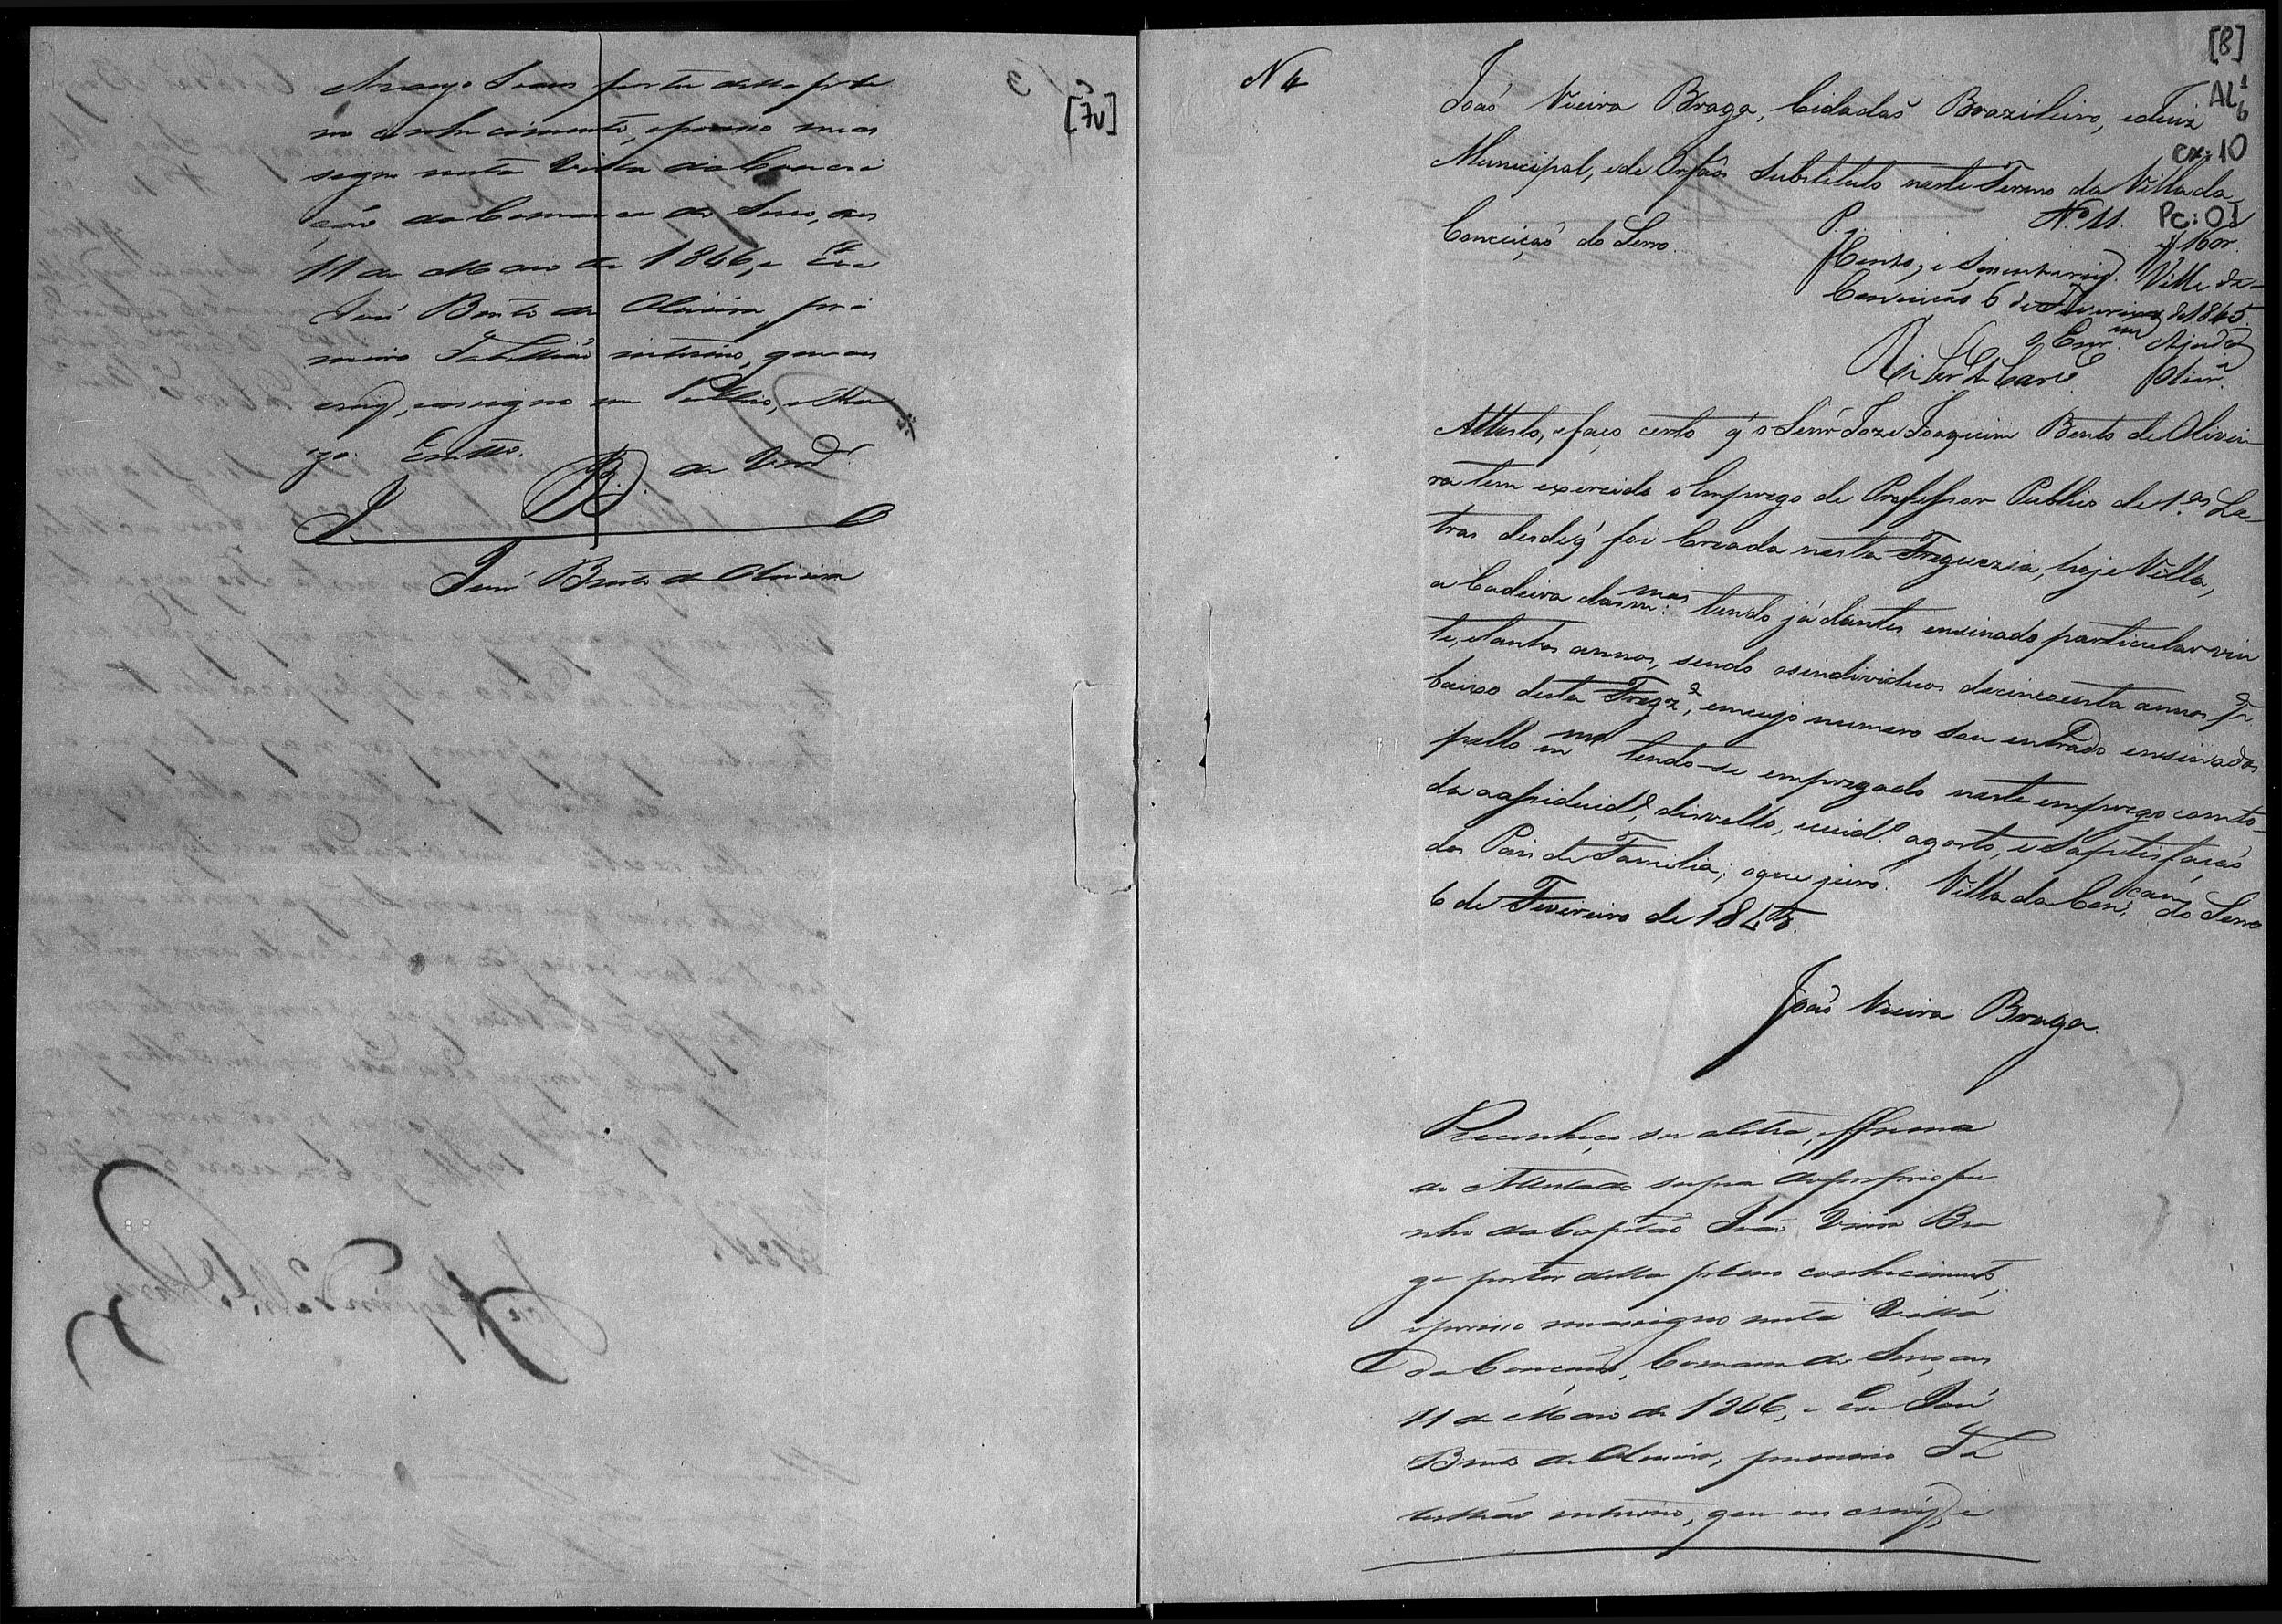 [7v]
Araujo Soares por ter della ple
no conhecimento, eporisso me as
signo nesta Villa da Concei
ção da Comarca do Serro, aos
11 de Maio de 1846, e Eu
José Bento de Oliveira, pri
meiro Tabellião interino, que os
escrevi, e assigno em Publico, e Ra
zo. Em tto.
de Verd.e
José Bento de Oliveira
[8]
AL 1
6
cx: 10
Pc: 01
N 4
João Vieira Braga, Cidadaõ Brazileiro, e Juiz
Municipal, e de Orfaõs Substituto neste Termo da Villa da
Conceiçaõ do Serro.
N.º 11.
P. 160 r.
Cento, e sessenta reis. Villa da
Conceição 6 de Fevereiro de 1845
Attesto, efaço certo q' o Senr Joze Joaquim Bento de Olivei-
ra tem exercido o Emprego de Professor Publico de 1.as Le-
tras desde q' foi Creada nesta Freguezia, hoje Villa,
a Cadeira das m.mas tendo já dantes ensinado particular vin
te, e tantos annos, sendo os individuos de cincoenta annos p.a
baixo desta Freg.a, em cujo numero sou entrado ensinados
pello m.mo tendo-se empregado neste emprego com to-
da assiduid.e, disvello, e cuid.o agosto, e Saptisfaçaõ
dos Pais de Familia; o que juro. Villa da Con.cam do Serro
6 de Fevereiro de 1845.
João Vieira Braga.
Reconheço ser a letra, e ffirma
do Attestado supra do proprio pu
nho do Capitão João Vieira Bra
ga por ter della pleno conhecimento,
eporisso me assigno nesta Villa
da Conceição, Comarca do Serro, aos
11 de Maio de 1846, e Eu José
Bento de Oliveira, primeiro Ta
bellião interino, que os escrevi, e